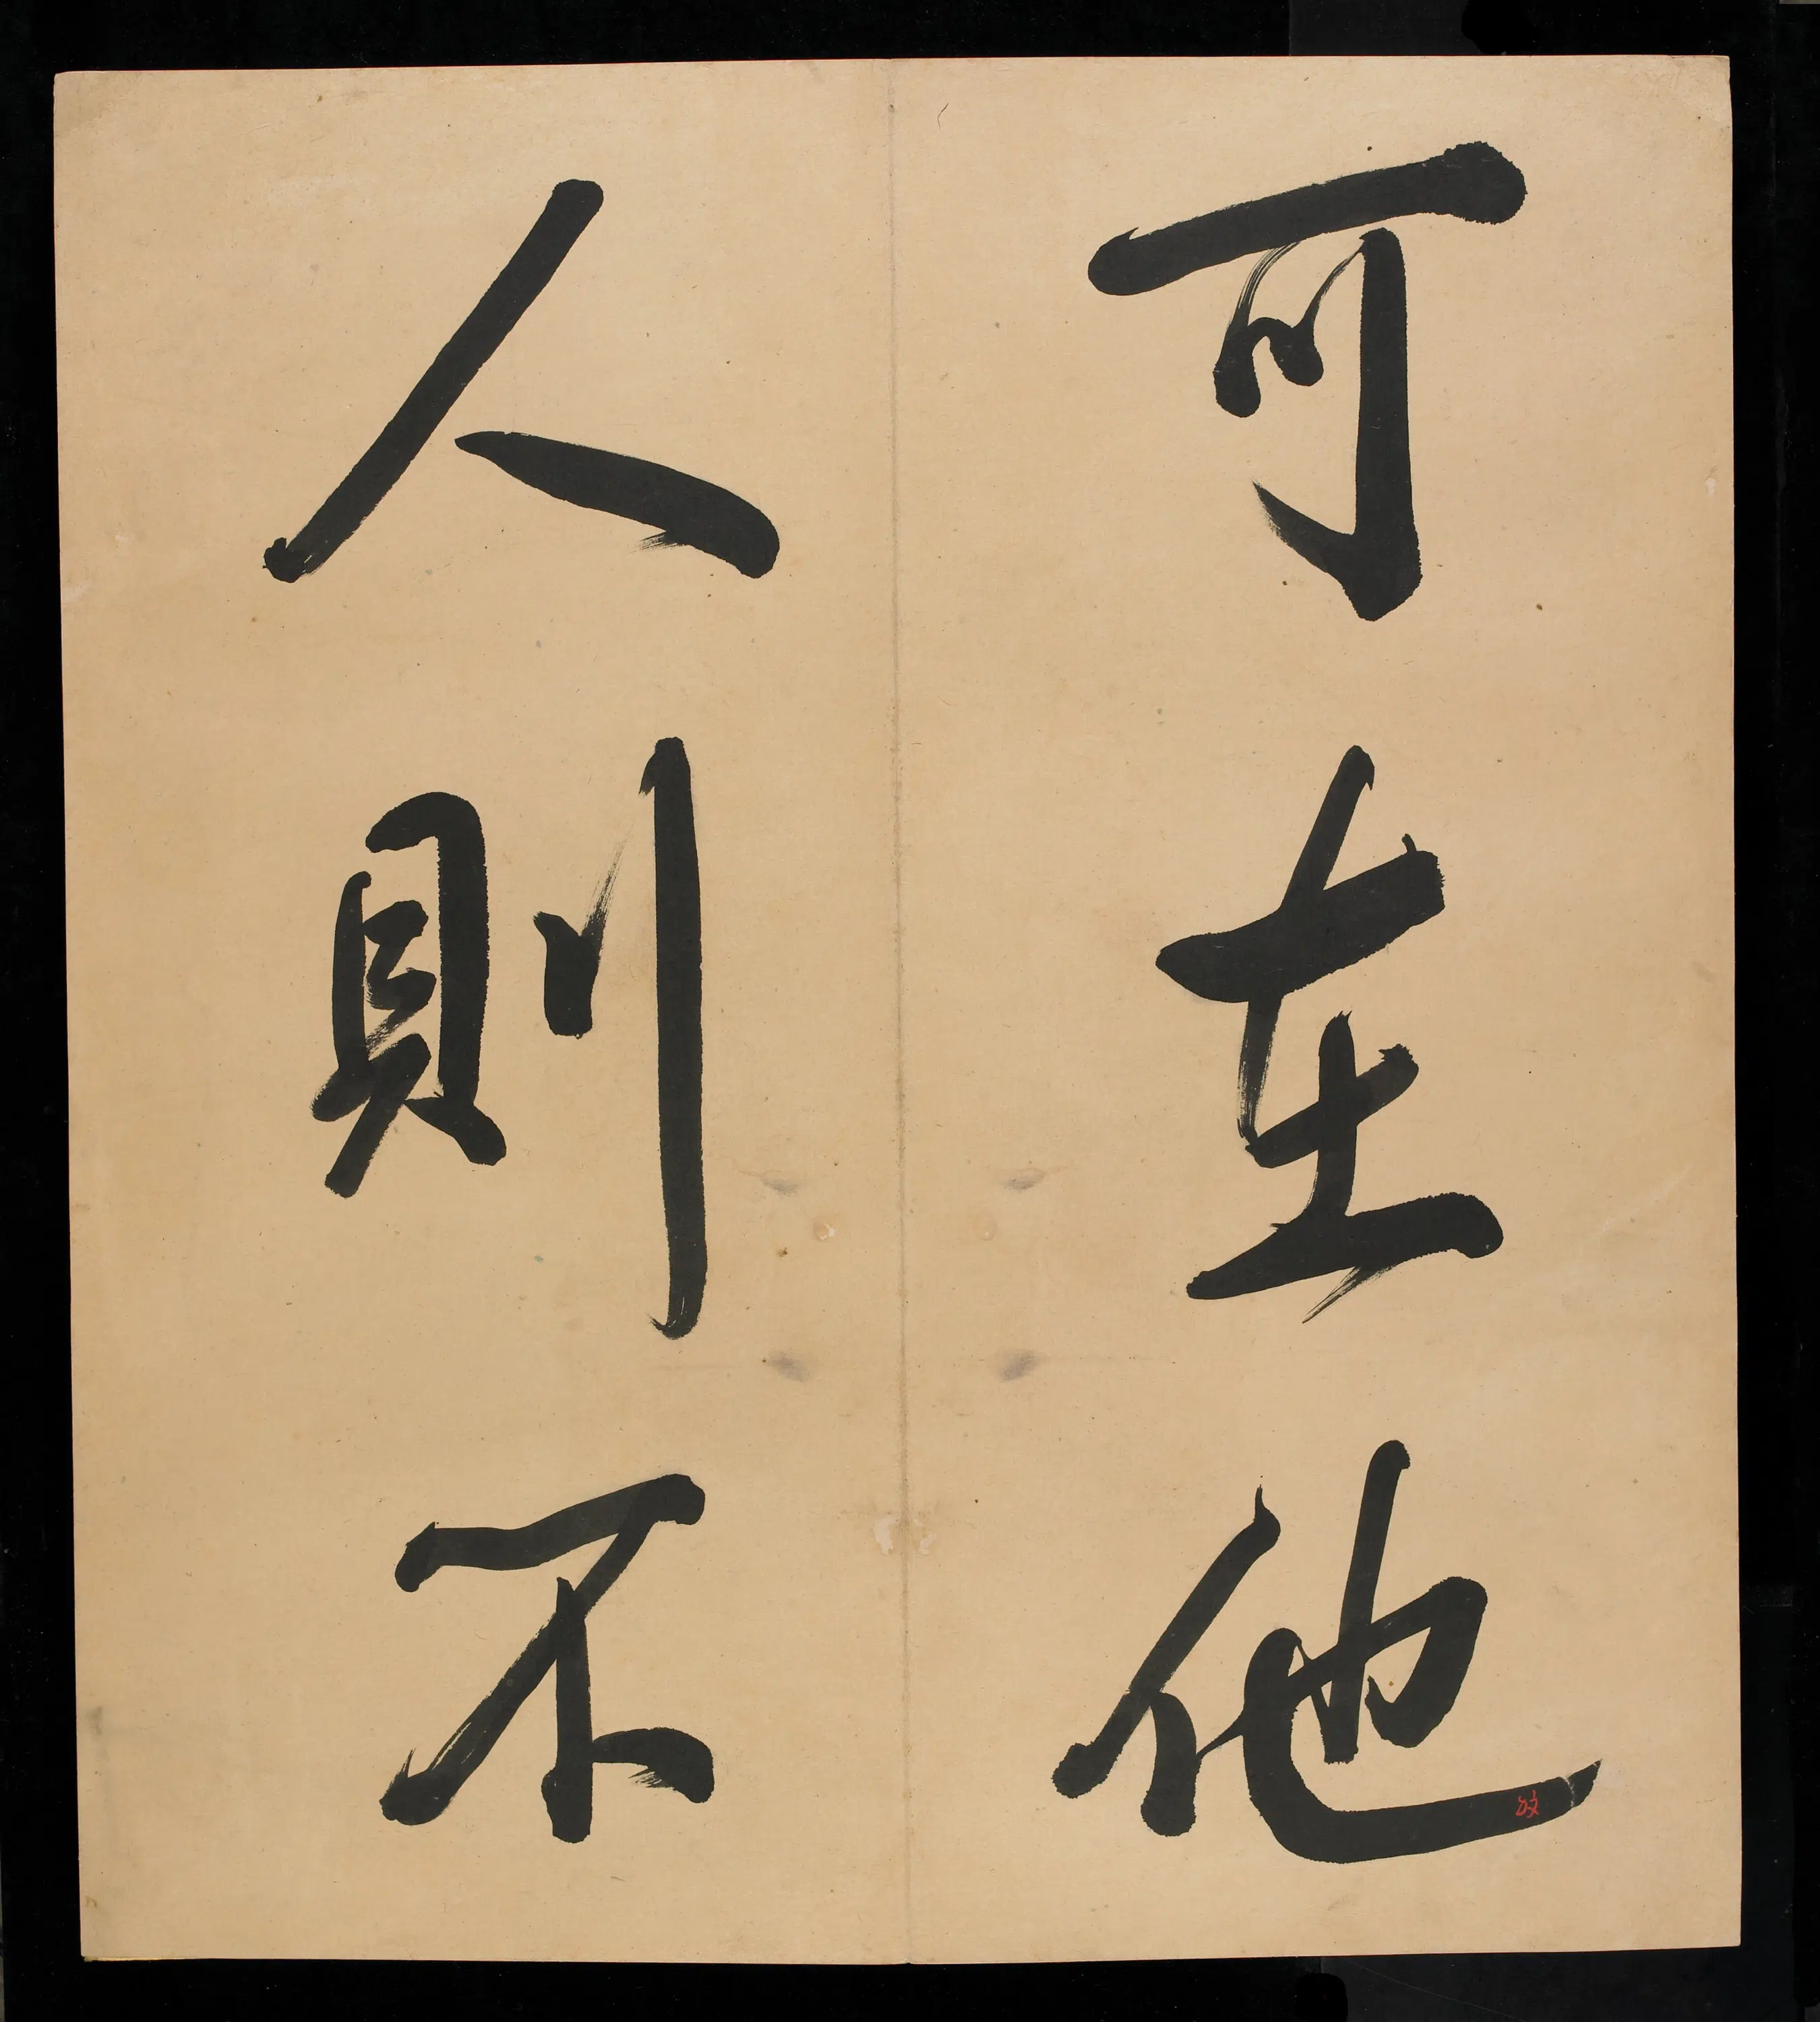 可在他
人則不